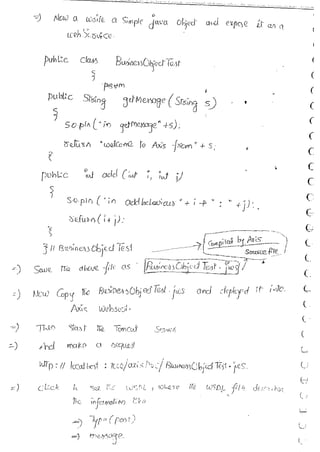 =) Now a write a Simple java Object and expose it as a
web Service.
public class BusinessObjectTest
{
public String getMessage (String s)
{
S.o.pln ("in getMessage" +s);
return "welcome to Axis from" + s;
}
public int add (int i, int j)
{
S.o.pln ("in add behaviour" + i + " : " + j);
return (i+j);
}
} // BusinessObjectTest
Compiled by Axis
Source file
=) Save the above file as BusinessObjectTest.jws
=) Now Copy the BusinessObjectTest.jws and deployed it into
Axis
=) Then Start the Tomcat Server
=) And make a request
http://localhost : BusinessObjectTest.jws.
=) click to see the WSDL, where the WSDL file describes
the information like
=) Type (port)
=) message.